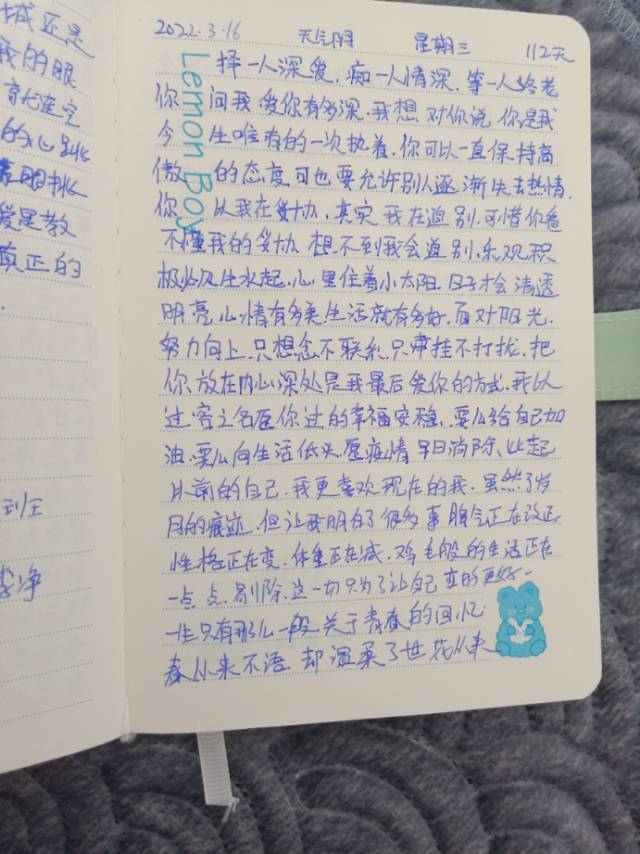 城还是
我的眼
的心
爱是教
真正的
到狂
2022.3.16 天气阴 星期三 112天
Lemon Boy
择一人深爱,痴一人情深,等一人终老
你 问我爱你有多深.我想对你说,你是我
今 生唯有的一次执着.你可以一直保持高
傲 的态度,可也要允许别人逐渐失去热情.
你 以我在妥协,其实我在道别.可惜你看
不懂我的妥协,想不到我会道别.乐观积
极必风生水起.心里住着小太阳.日子才会清透
明亮,心情有多美,生活就有多好.面对阳光.
努力向上.只想念不联系.只牵挂不打扰.把
你放在内心深处是我最后爱你的方式.我以
过客之名愿你过的幸福安稳.要么给自己加
油.要么向生活低头.愿疫情早日消除.比起
从前的自己.我更喜欢现在的我.虽然了岁
月的痕迹.但让我明白了很多事.脾气正在改
性格正在变.体重正在减.鸡毛般的生活正在
一点点剔除.这一切只为了让自己变的更好.一
生只有那么一段关于青春的回忆.
春从来不语.却温柔了世花从来